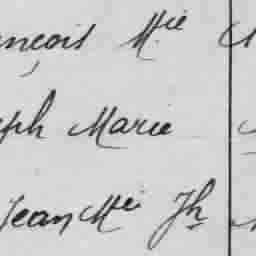 nçois Mie
eph Marie
Jean Mie Jh